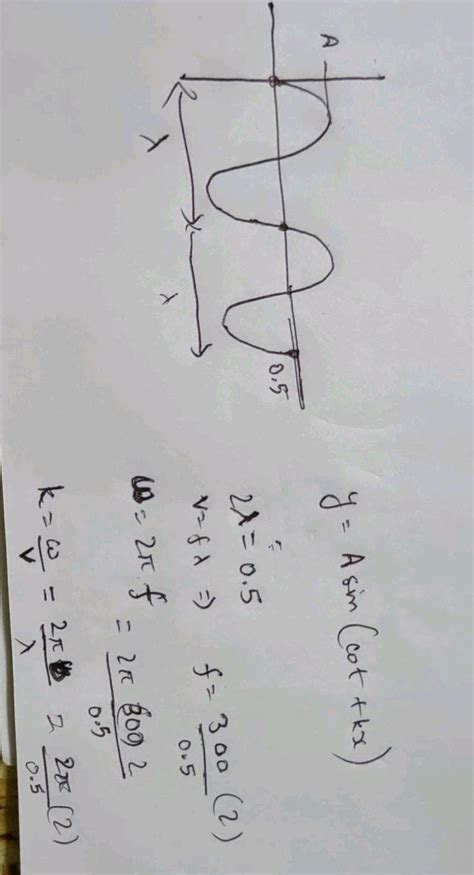 A
λ
λ
0.5
y = A sin(ωt + kx)
2λ = 0.5
v = fλ ⇒ f = 300/0.5 (2)
ω = 2π f = 2π 300 2/0.5
k = ω/v = 2π/λ = 2π/0.5 (2)